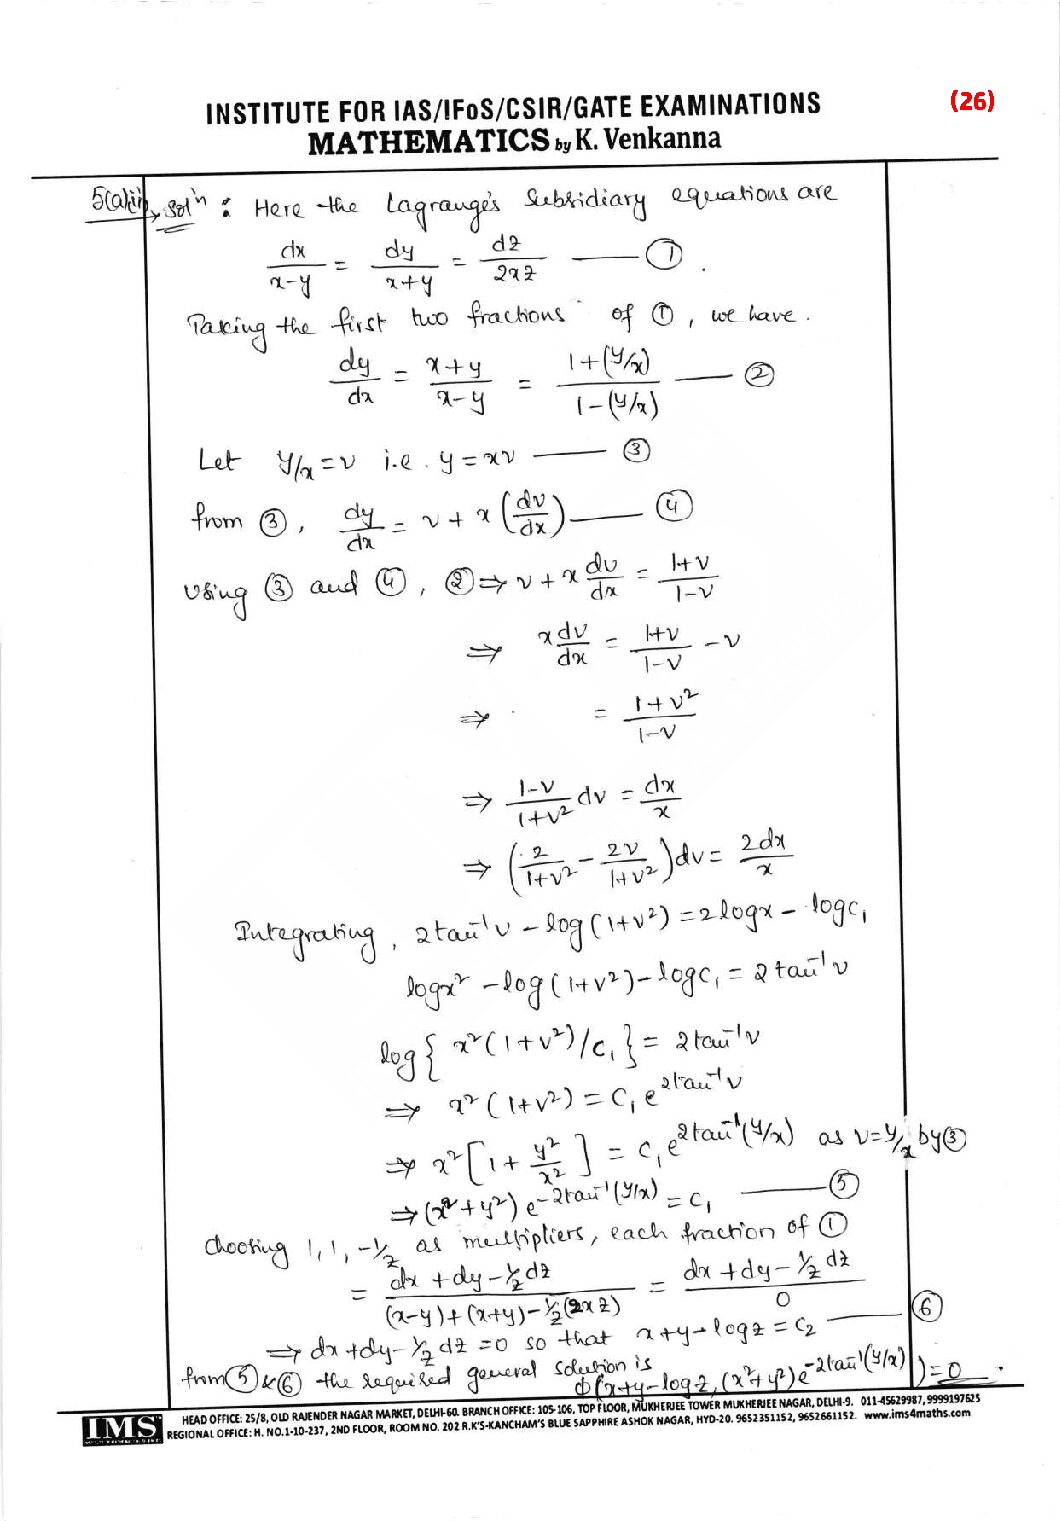 (26)
INSTITUTE FOR IAS/IFoS/CSIR/GATE EXAMINATIONS
MATHEMATICS by K. Venkanna
Solⁿ : Here the Lagrange's Subsidiary equations are
dx/(x-y) = dy/(x+y) = dz/(2xz) —— ①.
Taking the first two fractions of ①, we have.
dy/dx = (x+y)/(x-y) = (1+(y/x))/(1-(y/x)) —— ②
Let y/x = v i.e. y = xv —— ③
from ③, dy/dx = v + x (dv/dx) —— ④
Using ③ and ④, ② ⇒ v + x dv/dx = (1+v)/(1-v)
⇒ x dv/dx = (1+v)/(1-v) - v
⇒ = (1+v²)/(1-v)
⇒ (1-v)/(1+v²) dv = dx/x
⇒ (2/(1+v²) - 2v/(1+v²)) dv = 2dx/x
Integrating, 2tan⁻¹v - log(1+v²) = 2logx - logc₁
logx² - log(1+v²) - logc₁ = 2tan⁻¹v
log{ x²(1+v²)/c₁ } = 2tan⁻¹v
⇒ x²(1+v²) = c₁ e^(2tan⁻¹v)
⇒ x²[1 + y²/x²] = c₁ e^(2tan⁻¹(y/x)) as v = y/x by ③
⇒ (x²+y²) e^(-2tan⁻¹(y/x)) = c₁ —— ⑤
Choosing 1, 1, -1/z as multipliers, each fraction of ①
= (dx + dy - 1/z dz)/((x-y)+(x+y)-1/z(2xz)) = (dx + dy - 1/z dz)/0
⇒ dx + dy - 1/z dz = 0 so that x+y-logz = c₂ —— ⑥
from ⑤ & ⑥ the required general solution is
ϕ(x+y-logz, (x²+y²)e^(-2tan⁻¹(y/x))) = 0.
IMS
HEAD OFFICE: 25/8, OLD RAJENDER NAGAR MARKET, DELHI-60. BRANCH OFFICE: 105-106, TOP FLOOR, MUKHERJEE TOWER MUKHERJEE NAGAR, DELHI-9. 011-45629987, 9999197625
REGIONAL OFFICE: H. NO. 1-10-237, 2ND FLOOR, ROOM NO. 202 R.K'S-KANCHAM'S BLUE SAPPHIRE ASHOK NAGAR, HYD-20. 9652351152, 9652661152. www.ims4maths.com